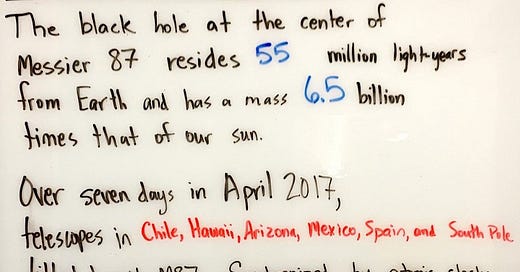 The black hole at the center of
Messier 87 resides 55 million light-years
from Earth and has a mass 6.5 billion
times that of our sun.
Over seven days in April 2017,
telescopes in Chile, Hawaii, Arizona, Mexico, Spain, and South Pole
M87. Synchronized by atomic clocks